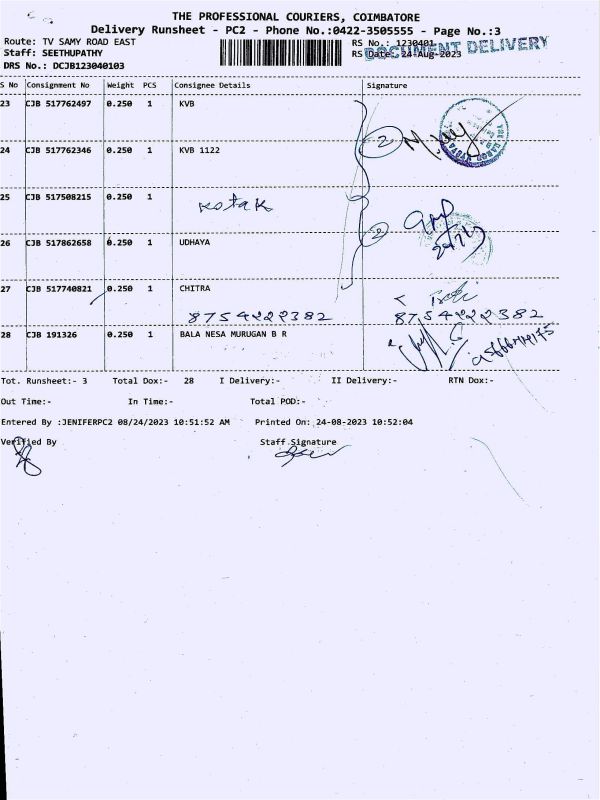 THE PROFESSIONAL COURIERS, COIMBATORE
Delivery Runsheet - PC2 - Phone No.:0422-3505555 - Page No.:3
Route: TV SAMY ROAD EAST
RS No.: 1230401
DOCUMENT DELIVERY
Staff: SEETHUPATHY
RS Date: 24-Aug-2023
DRS No.: DCJB123040103
S No Consignment No Weight PCS Consignee Details Signature
23 CJB 517762497 0.250 1 KVB
2
24 CJB 517762346 0.250 1 KVB 1122
25 CJB 517508215 0.250 1 Kotak
2
26 CJB 517862658 0.250 1 UDHAYA
27 CJB 517740821 0.250 1 CHITRA
8754222382 8754222382
28 CJB 191326 0.250 1 BALA NESA MURUGAN B R
Tot. Runsheet:- 3 Total Dox:- 28 I Delivery:- II Delivery:- RTN Dox:-
Out Time:- In Time:- Total POD:-
Entered By :JENIFERPC2 08/24/2023 10:51:52 AM Printed On: 24-08-2023 10:52:04
Verified By Staff Signature